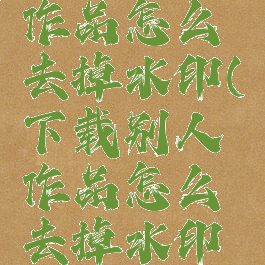 作品怎么
去掉水印(
下载别人
作品怎么
去掉水印